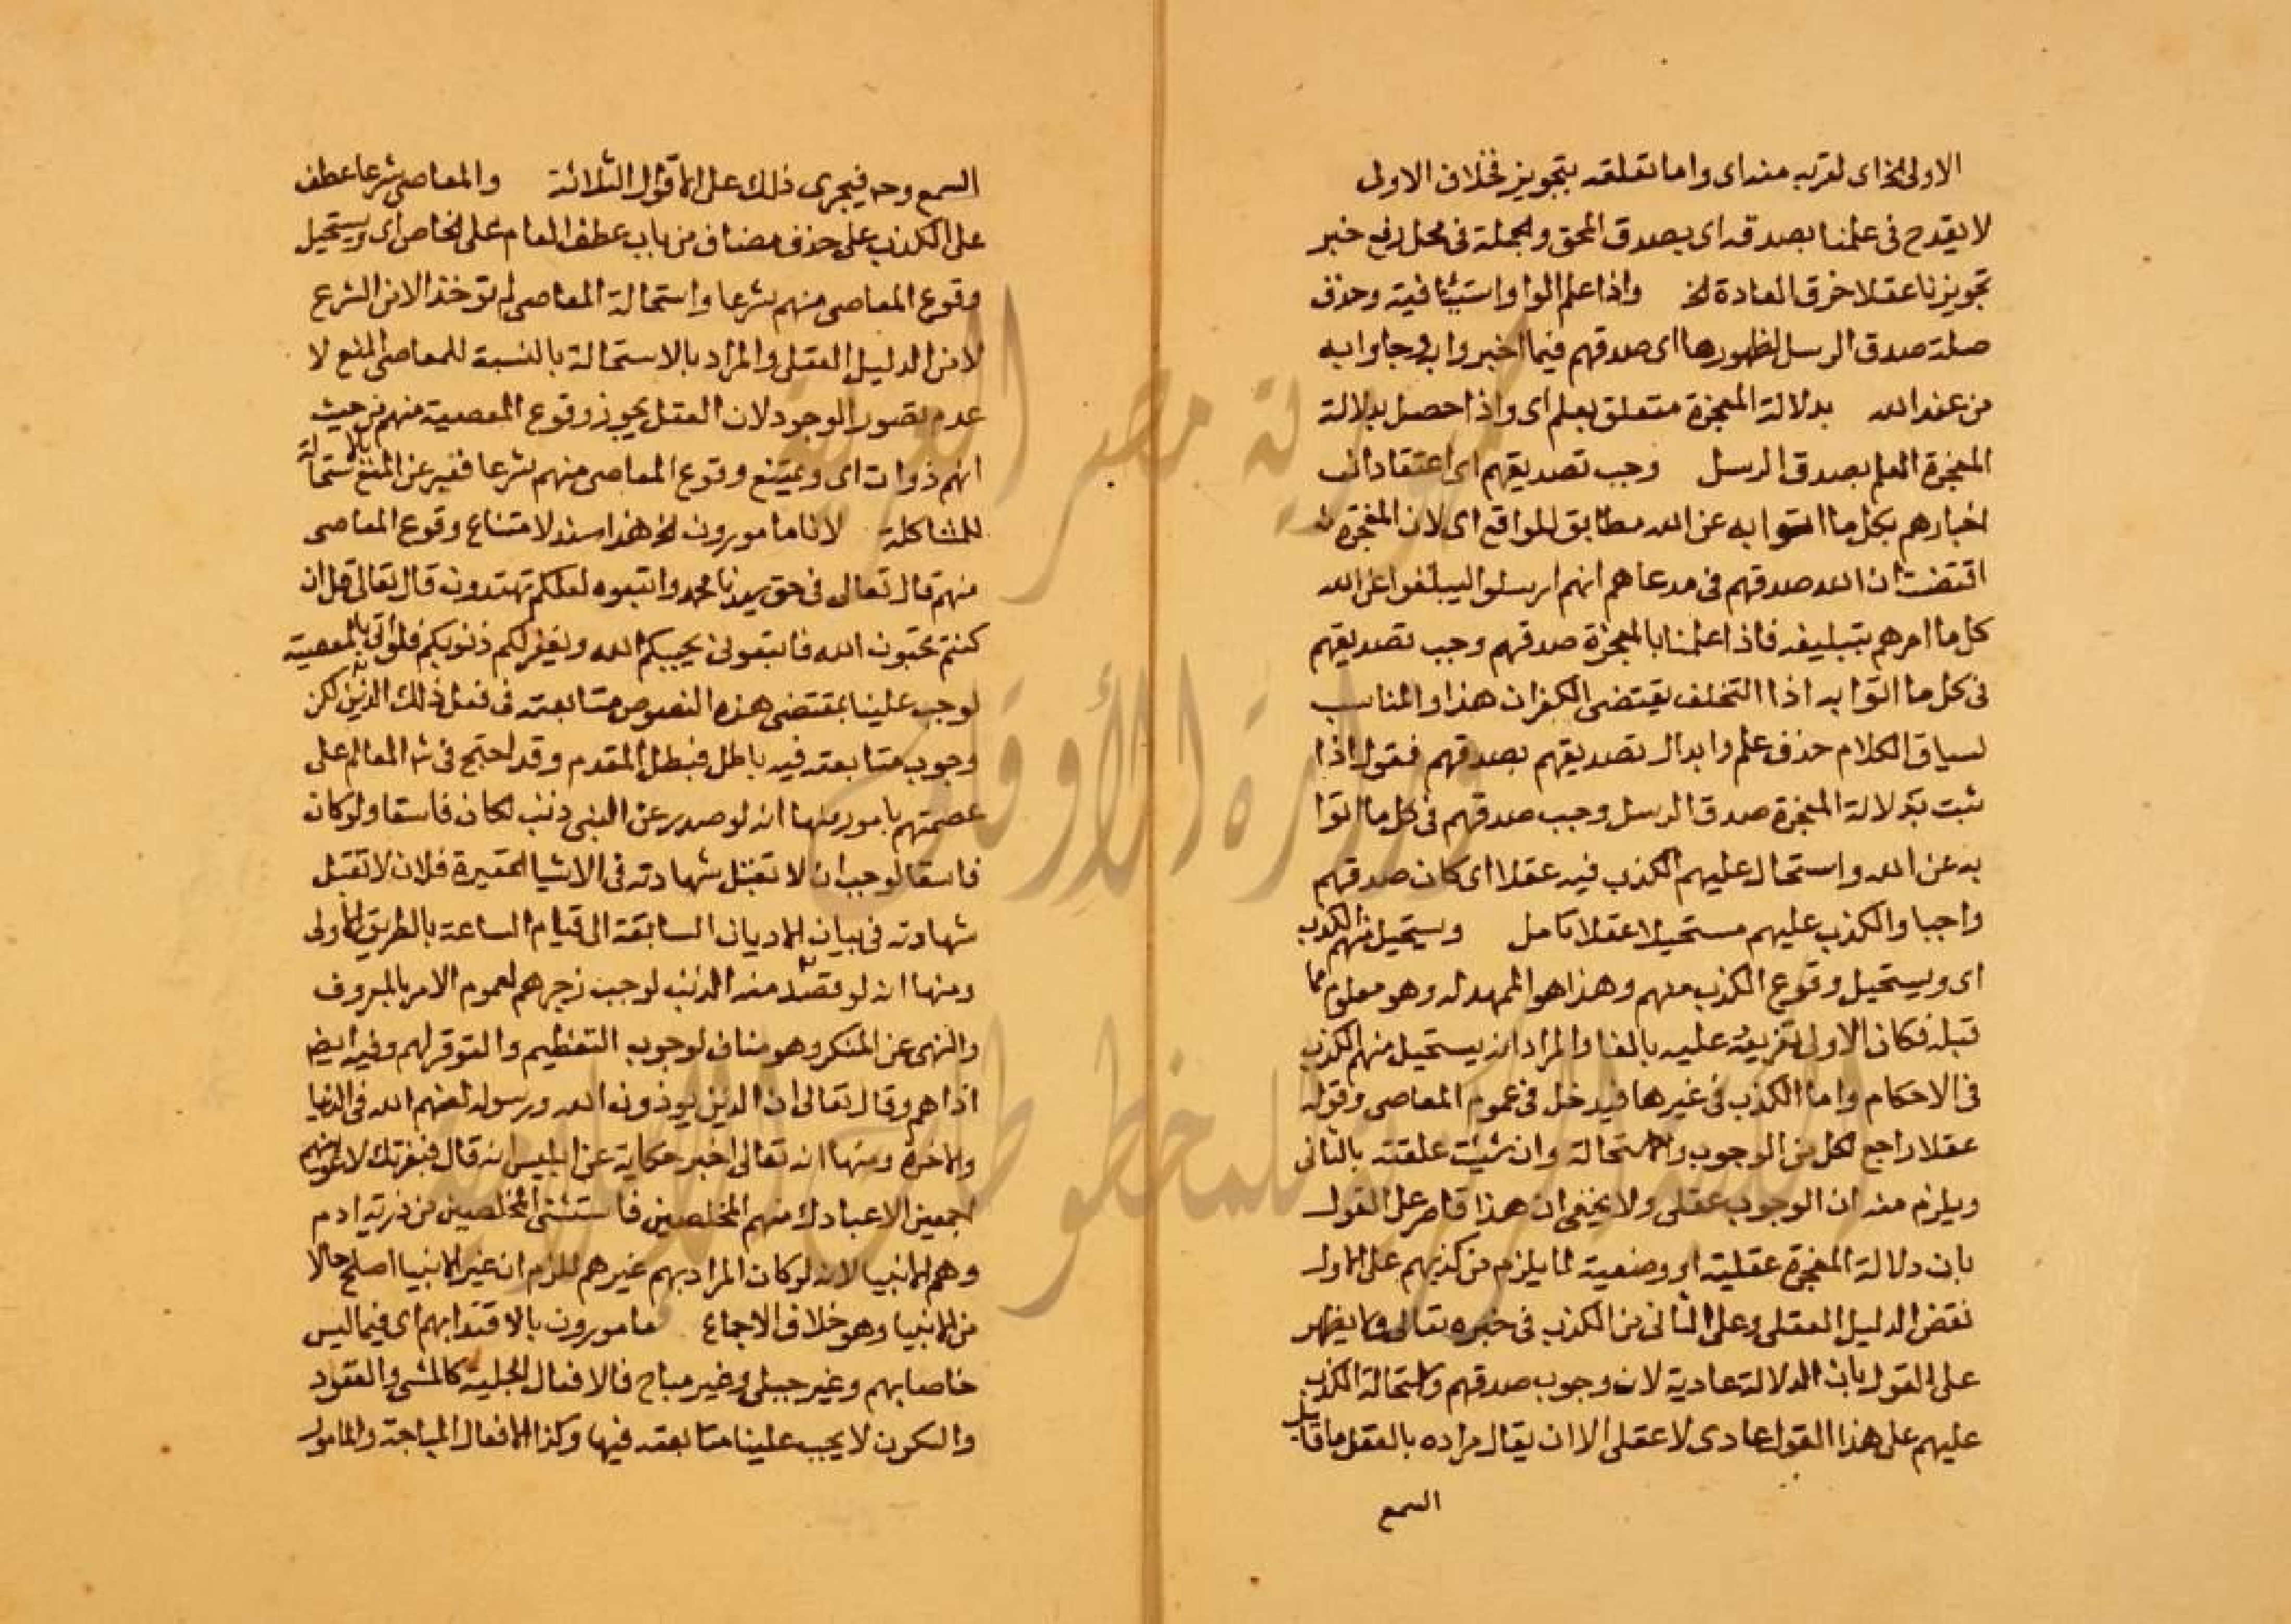 الاولى الخ اى لقربه منه اى واما تعلقه بتجويز فخلاف الاولى
لا يقدح فى علمنا بصدقه اى بصدق المحق والجملة فى محل رفع خبر
تجويزنا عقلا خرق العادة الخ واذا علم الواو استئنافية وحذف
صلة صدق الرسل لظهورها اى صدقهم فيما اخبروا به وجاوا به
من عند الله بدلالة المعجزة متعلق بعلم اى واذا حصل بدلالة
المعجزة العلم بصدق الرسل وجب تصديقهم اى اعتقاد ان
اخبارهم بكل ما اتوا به عن الله مطابق للواقع اى لان المعجزة
اقتضت ان الله صدقهم فى مدعاهم انهم ارسلوا ليبلغوا عن الله
كل ما امرهم بتبليغه فاذا علمنا بالمعجزة صدقهم وجب تصديقهم
فى كل ما اتوا به اذا التخلف يقتضى الكفران هذا والمناسب
لسياق الكلام حذف علم وابدال تصديقهم بصدقهم فيقول اذا
ثبت بدلالة المعجزة صدق الرسل وجب صدقهم فى كل ما اتوا
به عن الله واستحال عليهم الكذب فيه عقلا اى كان صدقهم
واجبا والكذب عليهم مستحيلا عقلا تامل ويستحيل منهم الكذب
اى ويستحيل وقوع الكذب منهم وهذا هو الممهد له وهو معلوم مما
قبله فكان الاولى تفريعه عليه بالفا والمراد انه يستحيل منهم الكذب
فى الاحكام واما الكذب فى غيرها فيدخل فى عموم المعاصى وقوله
عقلا راجع لكل من الوجوب والاستحالة وان شئت علقته بالثانى
ويلزم منه ان الوجوب عقلى ولا يخفى ان هذا قاصر على القول
بان دلالة المعجزة عقلية او وضعية لما يلزم من كذبهم على الاول
نقض الدليل العقلى وعلى الثانى من الكذب فى خبره تعالى ولا يظهر
على القول بان الدلالة عادية لان وجوب صدقهم واستحالة الكذب
عليهم على هذا القول عادى لا عقلى الا ان يقال مراده بالعقل ما قابل
السمع
السمع وحده فيجرى ذلك على الاقوال الثلاثة والمعاصى شرعا عطف
على الكذب على حذف مضاف من باب عطف العام على الخاص اى ويستحيل
وقوع المعاصى منهم شرعا واستحالة المعاصى لم توخذ الا من الشرع
لا من الدليل العقلى والمراد بالاستحالة بالنسبة للمعاصى المنع لا
عدم تصور الوجود لان العقل يجوز وقوع المعصية منهم من حيث
انهم ذوات اى ويمتنع وقوع المعاصى منهم شرعا فغير عن المنع بالاستحالة
للمشاكلة لانا مامورون الخ هذا سند لامتناع وقوع المعاصى
منهم قال تعالى فى حق سيدنا محمد واتبعوه لعلكم تهتدون قال تعالى قل ان
كنتم تحبون الله فاتبعونى يحببكم الله ويغفر لكم ذنوبكم فلو اتى بالمعصية
لوجب علينا بمقتضى هذه النصوص متابعته فى فعل ذلك الذنب لكن
وجوب متابعته فيه باطل فبطل المقدم وقد احتج فى ش المعالم على
عصمتهم بامور منها انه لو صدر عن النبى ذنب لكان فاسقا ولو كان
فاسقا لوجب ان لا تقبل شهادته فى الاشيا الحقيرة فلان لا تقبل
شهادته فى بيان الاديان السابقة الى قيام الساعة بالطريق الاولى
ومنها انه لو قصد منه الذنب لوجب زجرهم لعموم الامر بالمعروف
والنهى عن المنكر وهو مناف لوجوب التعظيم والتوقر لهم وفيه ايضا
اذاهم وقال تعالى ان الذين يوذون الله ورسوله لعنهم الله فى الدنيا
والاخرة ومنها انه تعالى اخبر حكاية عن ابليس انه قال فبعزتك لاغوينهم
اجمعين الا عبادك منهم المخلصين فاستثنى المخلصين من ذرية ادم
وهم الانبيا لانه لو كان المراد بهم غيرهم للزم ان غير الانبيا اصلح حالا
من الانبيا وهو خلاف الاجماع مامورون بالاقتدا بهم اى فيما ليس
خاصا بهم وغير جبلى وغير مباح فالافعال الجبلية كالمشى والقعود
والسكون لا يجب علينا متابعته فيها وكذا الافعال المباحة والمامور
جمهورية مصر العربية
وزارة الأوقاف
المكتبة المركزية للمخطوطات الإسلامية